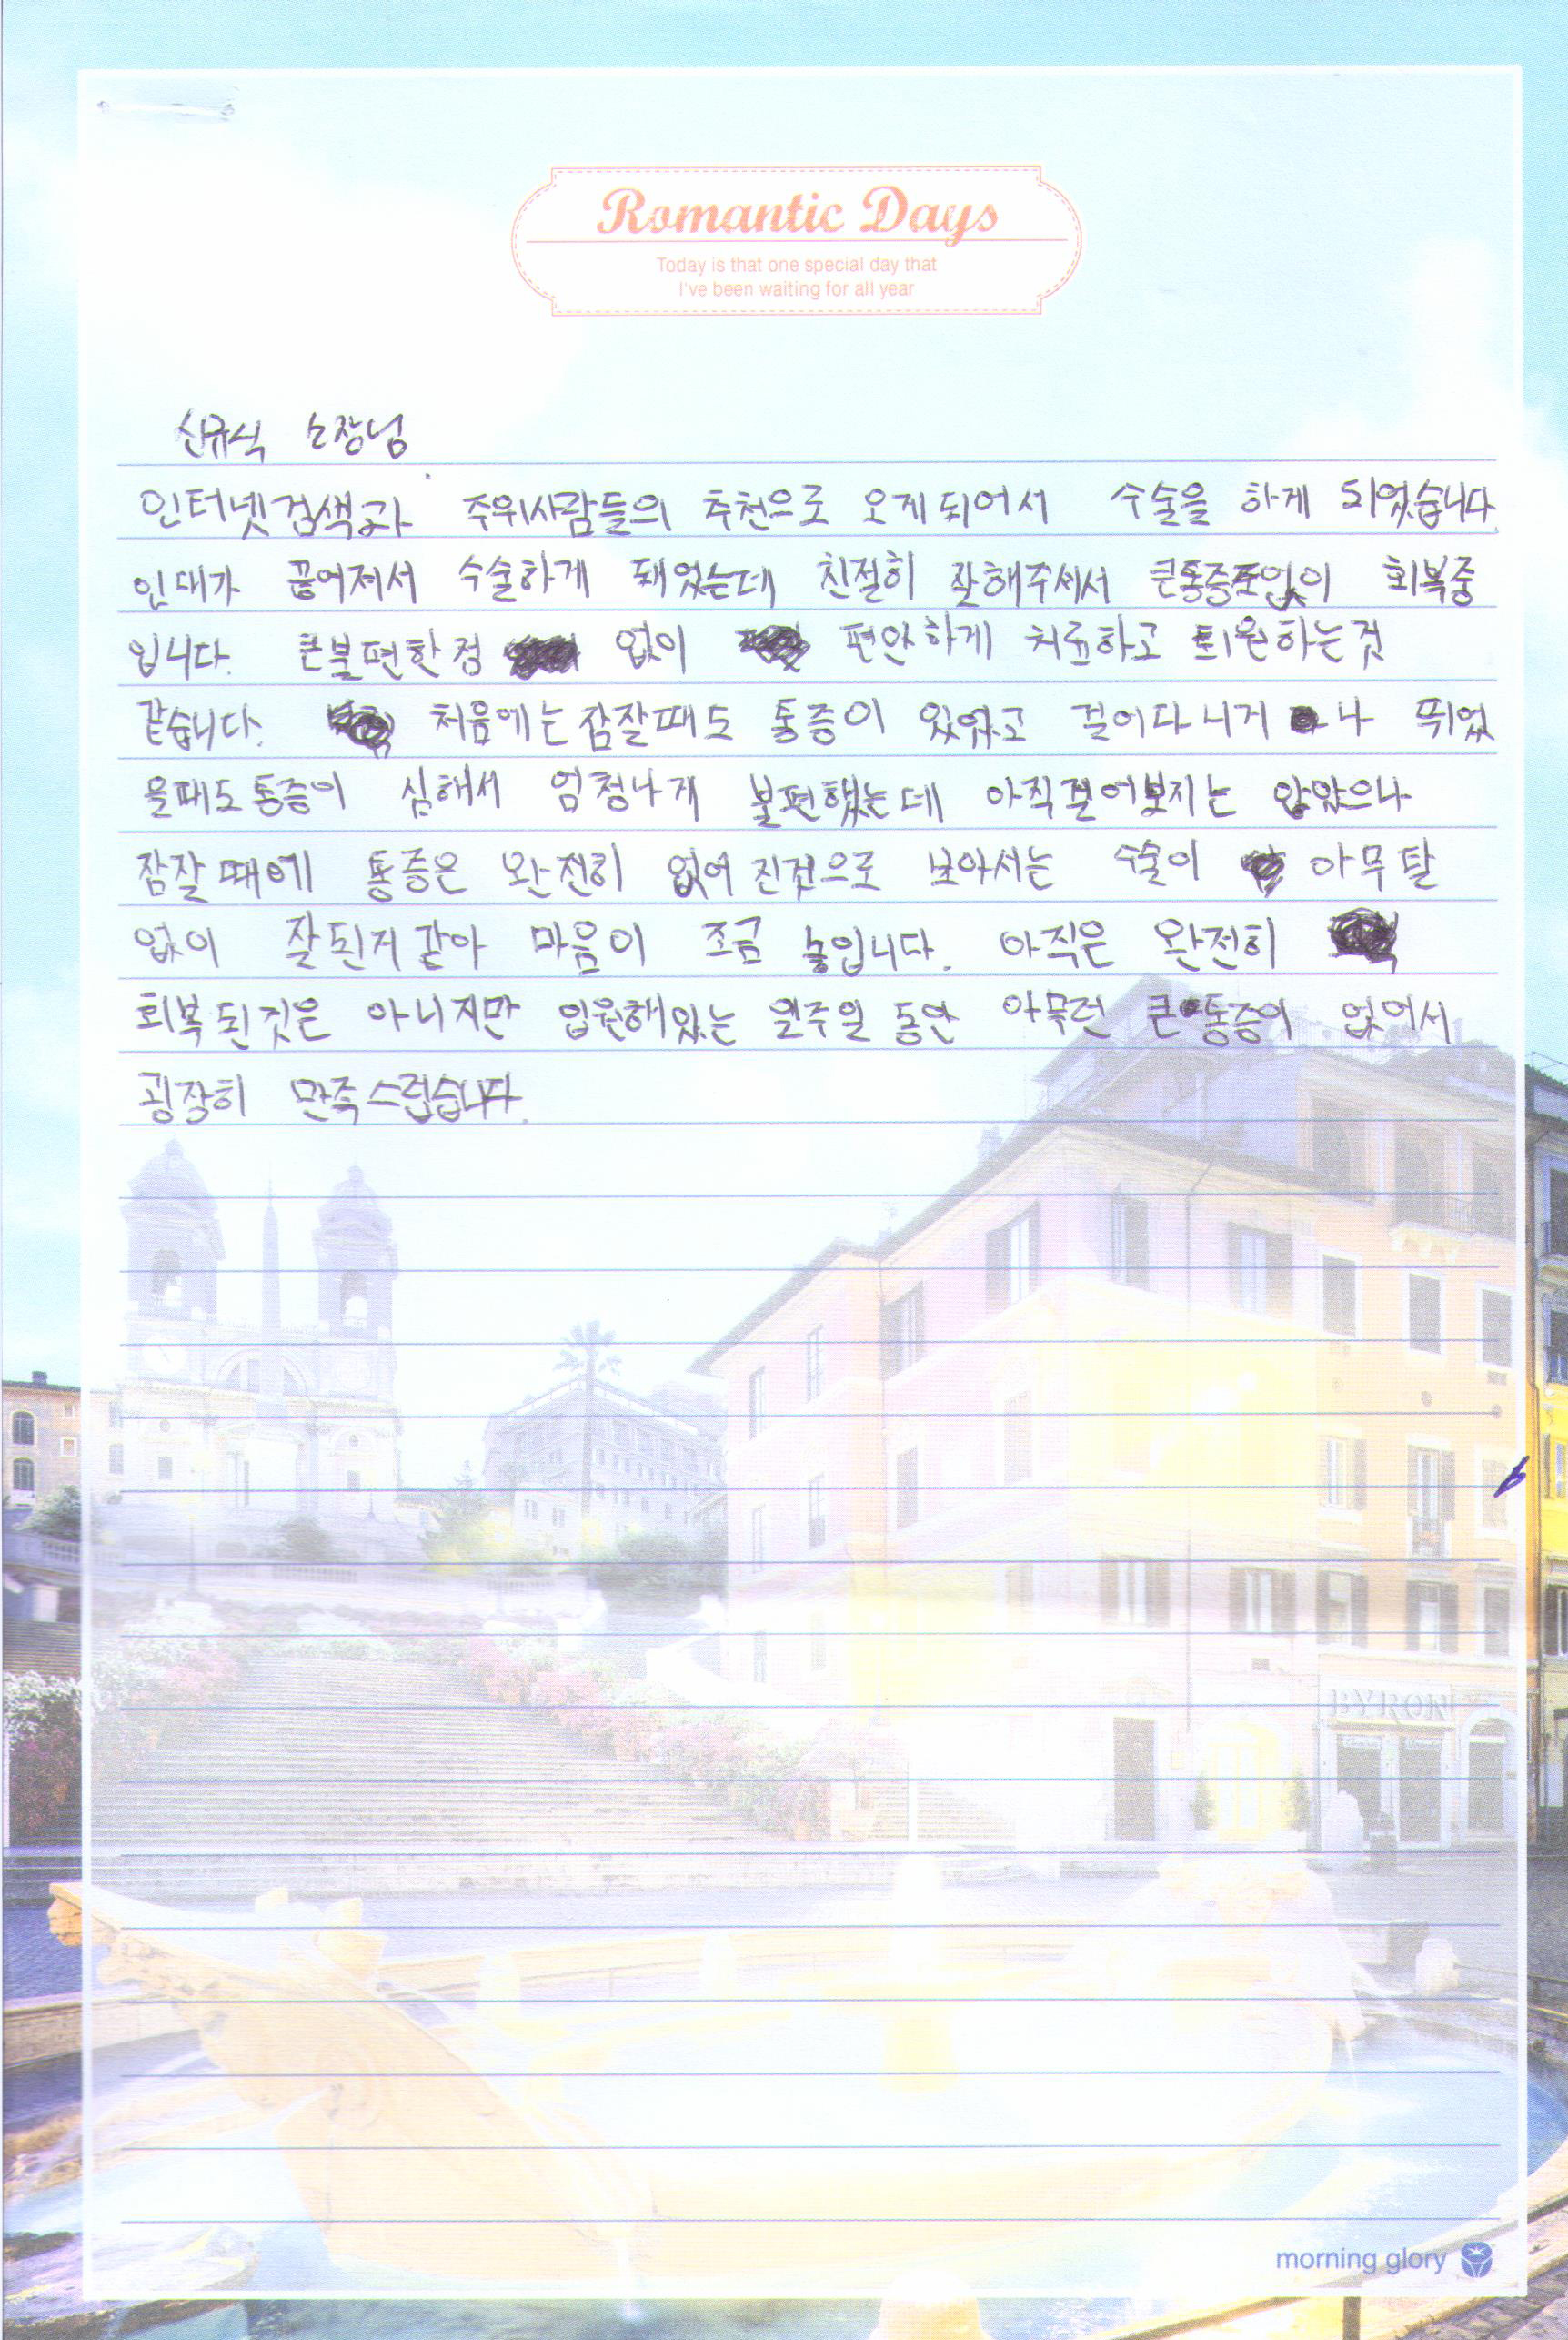 Romantic Days
Today is that one special day that
I've been waiting for all year
신규식 소장님
인터넷검색과 주위사람들의 추천으로 오게되어서 수술을 하게 되었습니다.
인대가 끊어져서 수술하게 돼었는데 친절히 잘해주셔서 큰통증도없이 회복중
입니다. 큰불편한점 없이 편안하게 치료하고 퇴원하는것
같습니다. 처음에는 잠잘때도 통증이 있었고 걸어다니거나 뛰었
을때도통증이 심해서 엄청나게 불편했는데 아직걸어보지는 않았으나
잠잘때에 통증은 완전히 없어진것으로 보아서는 수술이 아무탈
없이 잘된거같아 마음이 조금 놓입니다. 아직은 완전히
회복된것은 아니지만 입원해있는 일주일 동안 아무런 큰통증이 없어서
굉장히 만족스럽습니다.
BYRON
morning glory